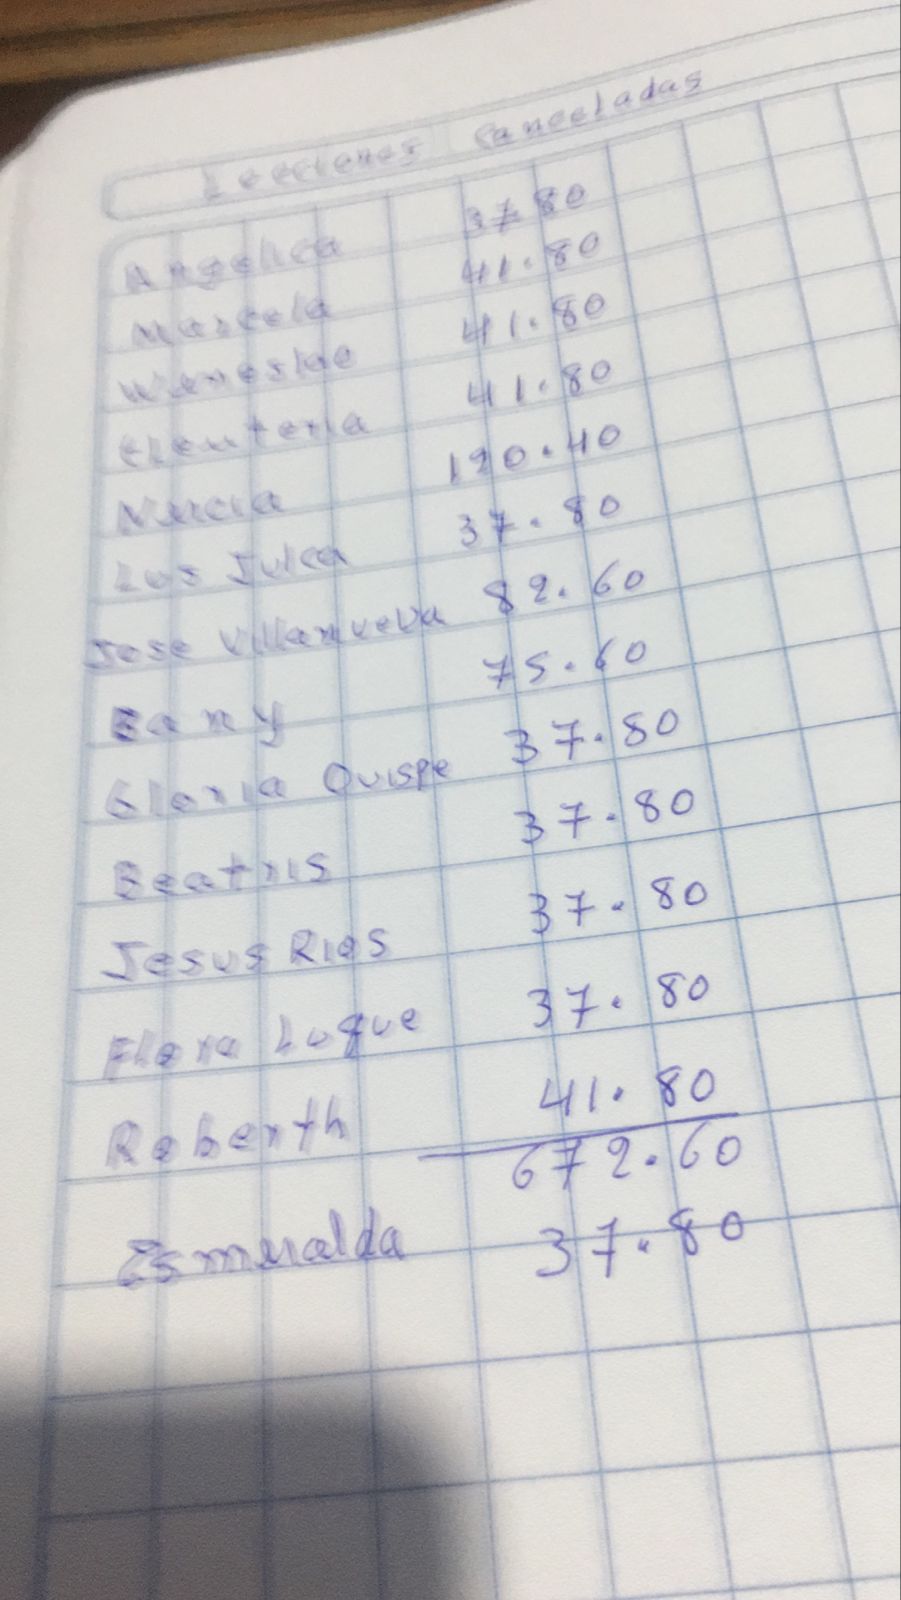 Lecciones Canceladas
Angelica 37 80
Marcela 41.80
Weneslao 41.80
Eleuteria 41.80
Nuria 120.40
Luz Julca 37.80
Jose Villanueva 82.60
Bany 75.60
Gloria Quispe 37.80
Beatris 37.80
Jesus Rios 37.80
Flora Luque 37.80
Roberth 41.80
672.60
Esmeralda 37.80